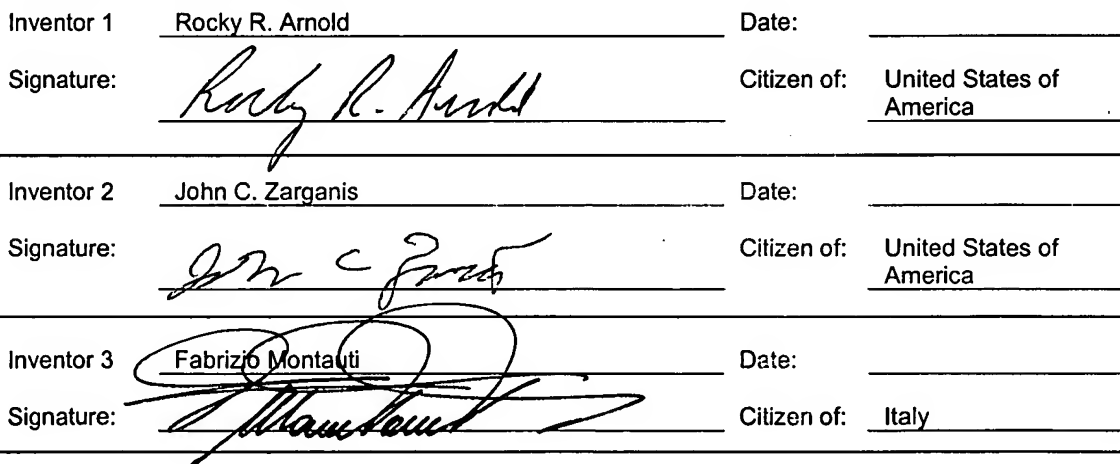 Inventor 1 Rocky R. Arnold Date:
Signature: Rocky R. Arnold Citizen of: United States of
America
Inventor 2 John C. Zarganis Date:
Signature: John C Citizen of: United States of
America
Inventor 3 Fabrizio Montauti Date:
Signature: Citizen of: Italy